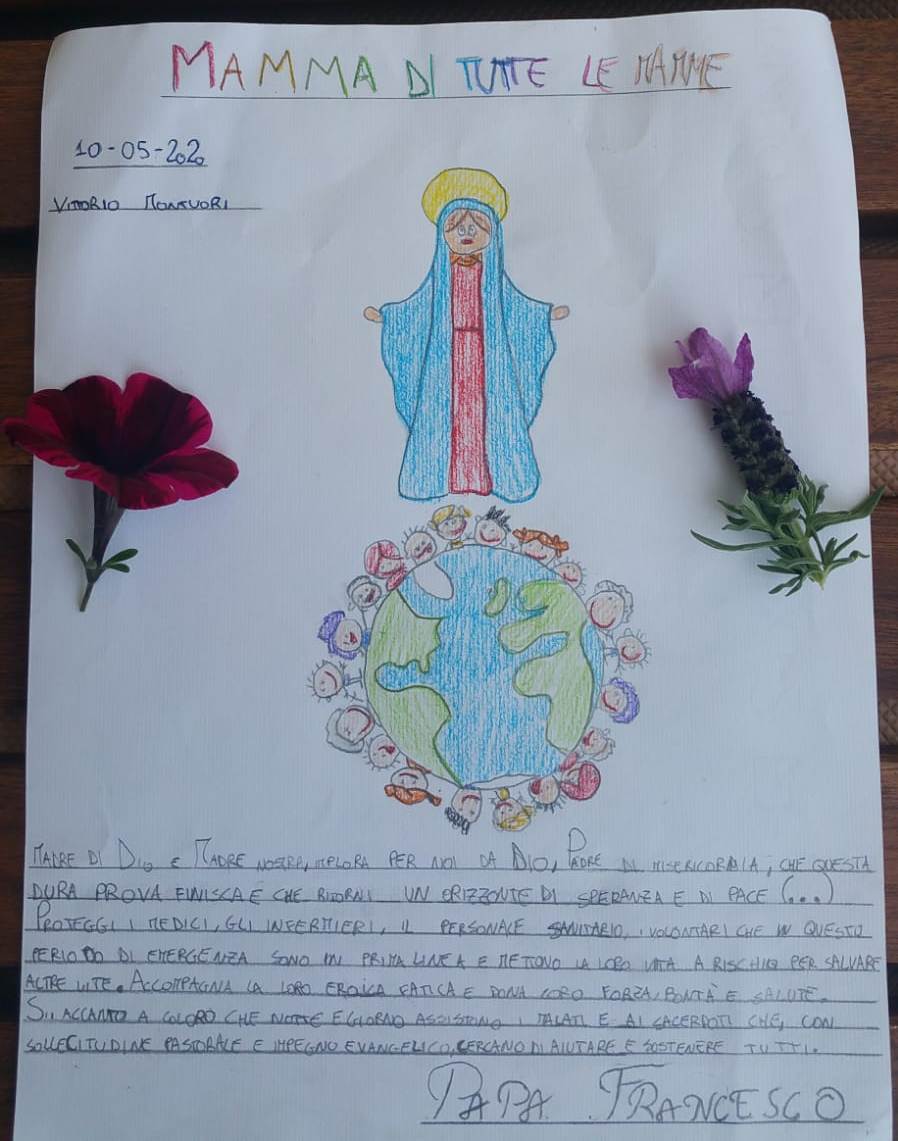 MAMMA DI TUTTE LE MAMME
10-05-2020
VITTORIO MONTUORI
MADRE DI DIO E MADRE NOSTRA, IMPLORA PER NOI DA DIO, PADRE DI MISERICORDIA, CHE QUESTA
DURA PROVA FINISCA E CHE RITORNI UN ORIZZONTE DI SPERANZA E DI PACE (...)
PROTEGGI I MEDICI, GLI INFERMIERI, IL PERSONALE SANITARIO, I VOLONTARI CHE IN QUESTO
PERIODO DI EMERGENZA SONO IN PRIMA LINEA E METTONO LA LORO VITA A RISCHIO PER SALVARE
ALTRE VITE. ACCOMPAGNA LA LORO EROICA FATICA E DONA LORO FORZA, BONTÀ E SALUTE.
SII ACCANTO A COLORO CHE NOTTE E GIORNO ASSISTONO I MALATI E AI SACERDOTI CHE, CON
SOLLECITUDINE PASTORALE E IMPEGNO EVANGELICO, CERCANO DI AIUTARE E SOSTENERE TUTTI.
PAPA FRANCESCO